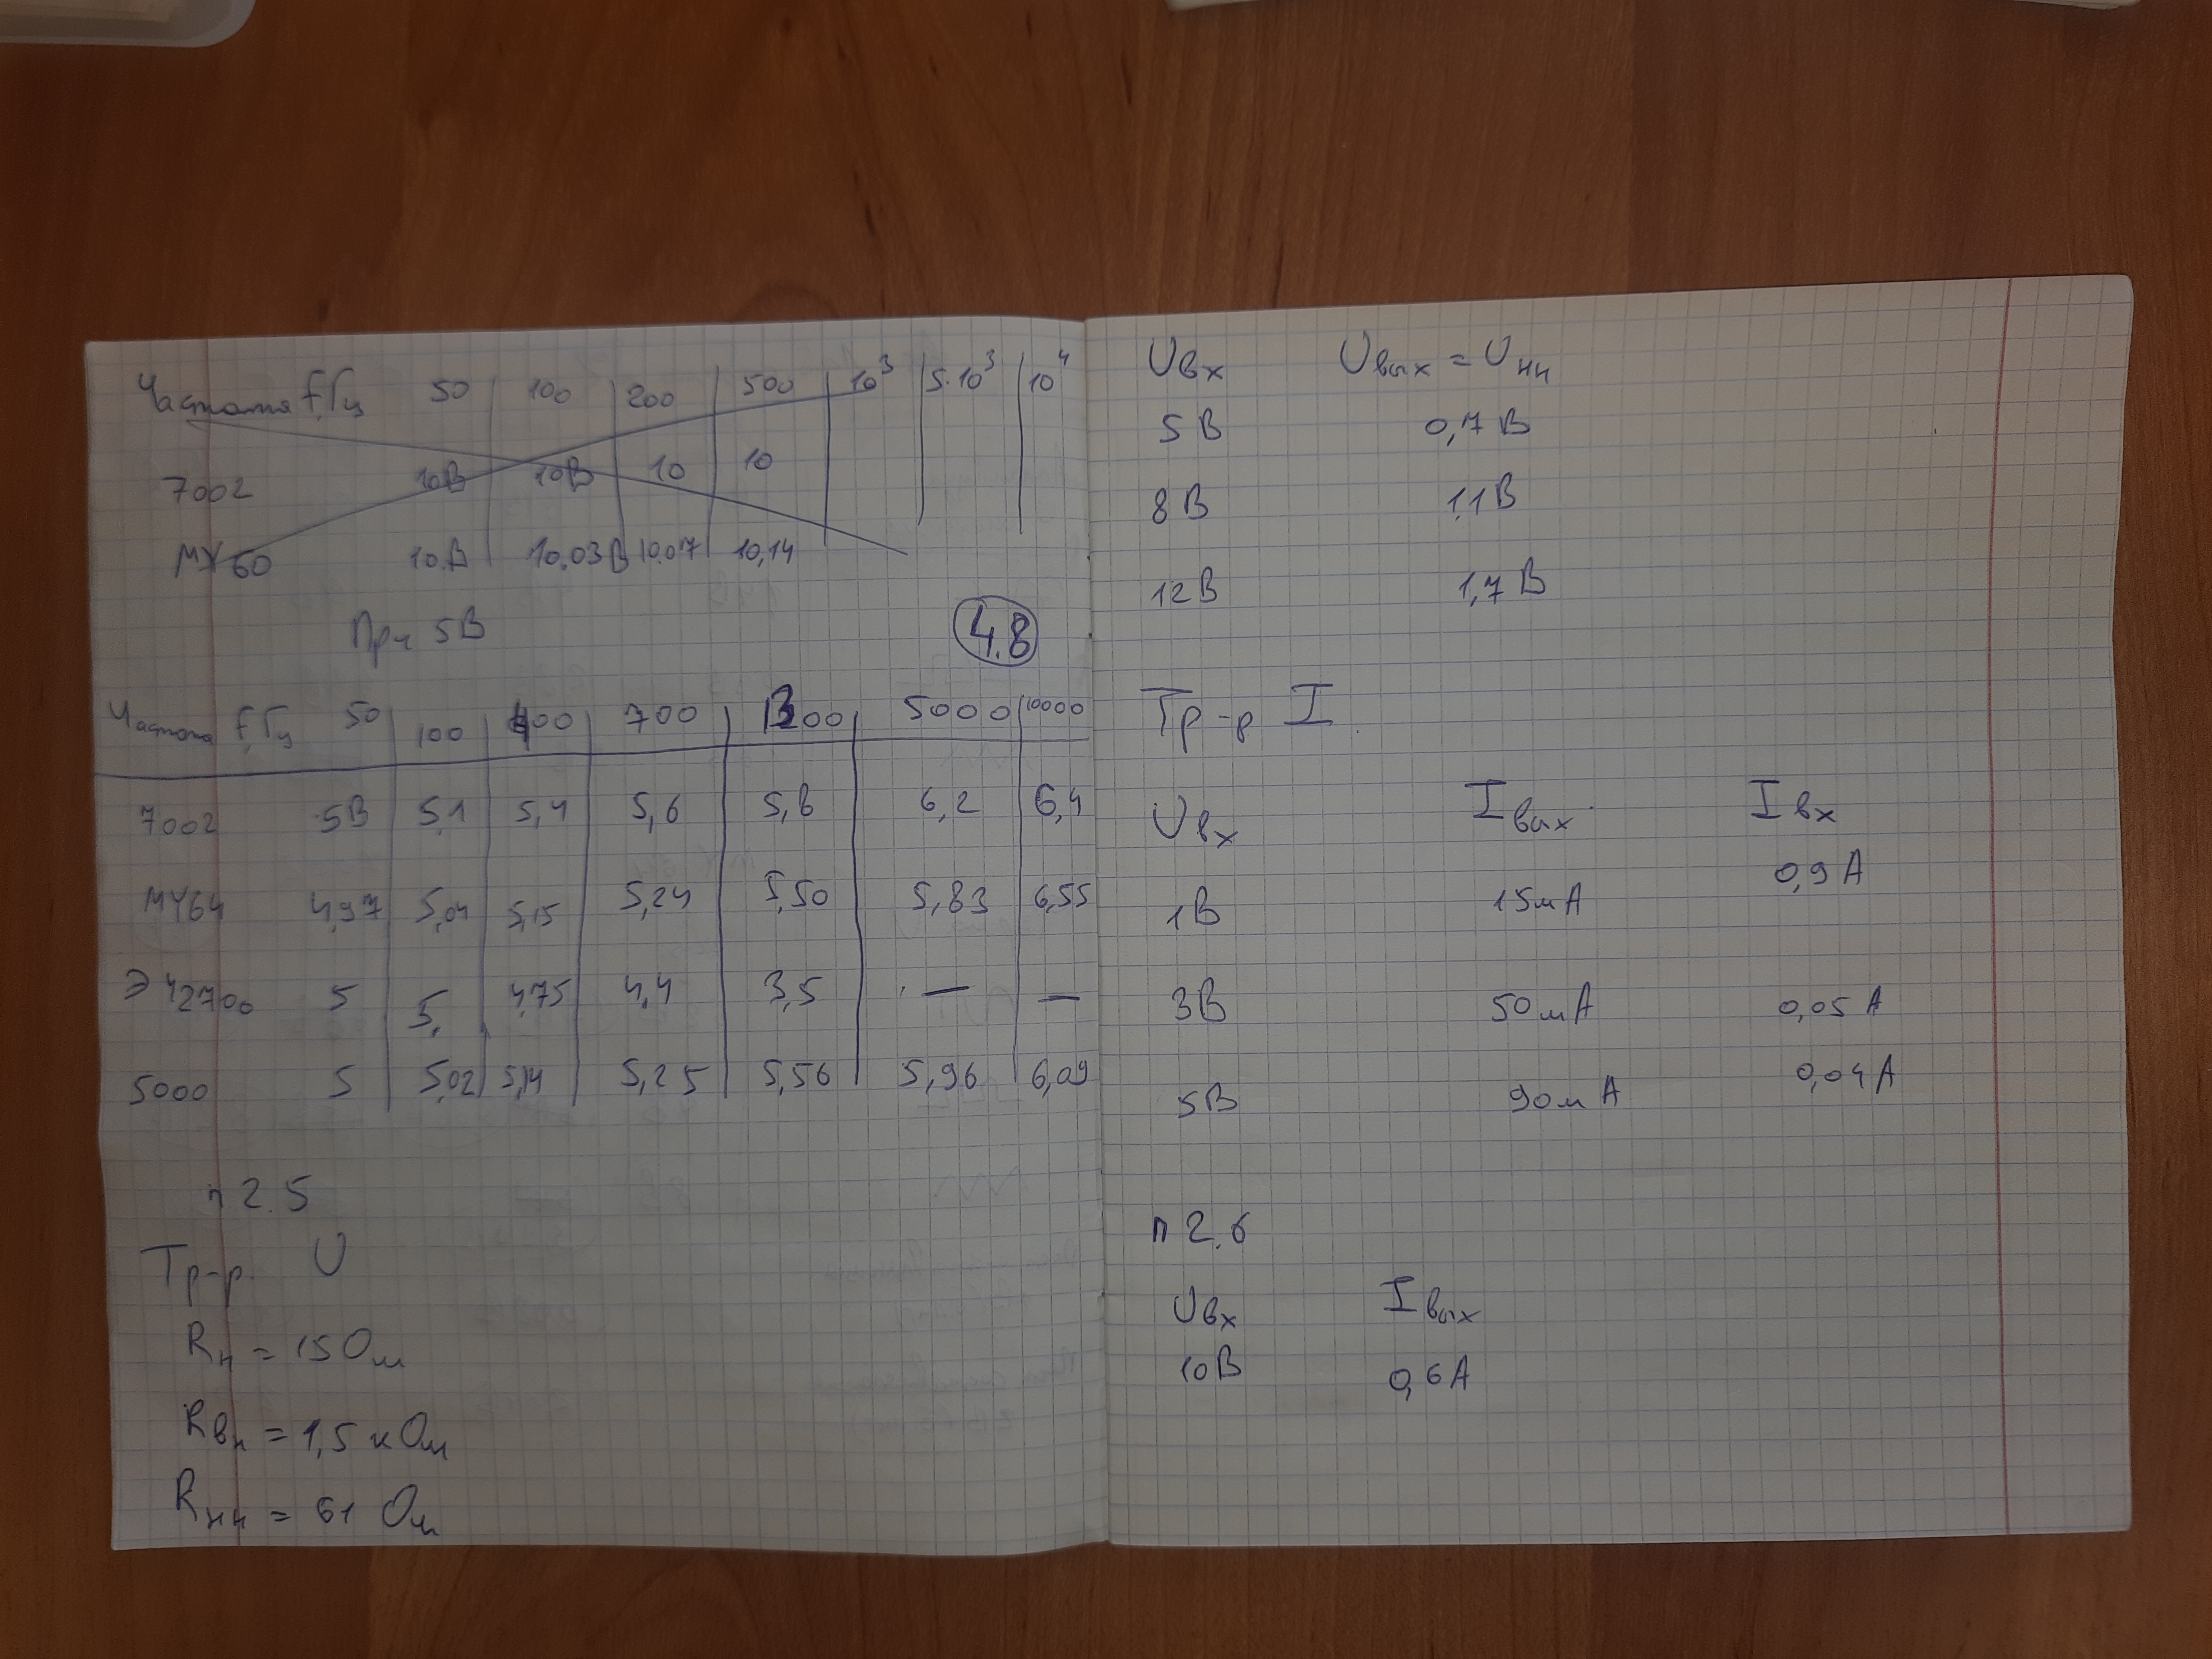 Частота f,Гц 50 100 200 500 10³ 5·10³ 10⁴
7002 10В 10В 10 10
МУ60 10В 10.03В 10.07 10,14
При 5В
4.8
Частота f,Гц 50 100 400 700 1200 5000 10000
7002 5В 5,1 5,4 5,6 5,8 6,2 6,4
МУ64 4,97 5,04 5,15 5,24 5,50 5,83 6,55
Э 42700 5 5, 4,75 4,4 3,5 — —
5000 5 5,02 5,14 5,25 5,56 5,96 6,09
п 2.5
Тр-р. U
Rн = 15 Ом
Rвн = 1,5 кОм
Rнн = 61 Ом
Uвх Uвых = Uнн
5В 0,7В
8В 1,1В
12В 1,7В
Тр-р I
Uвх Iвых Iвх
1В 15мА 0,9А
3В 50мА 0,05А
5В 90мА 0,04А
п 2.6
Uвх Iвых
10В 0,6А